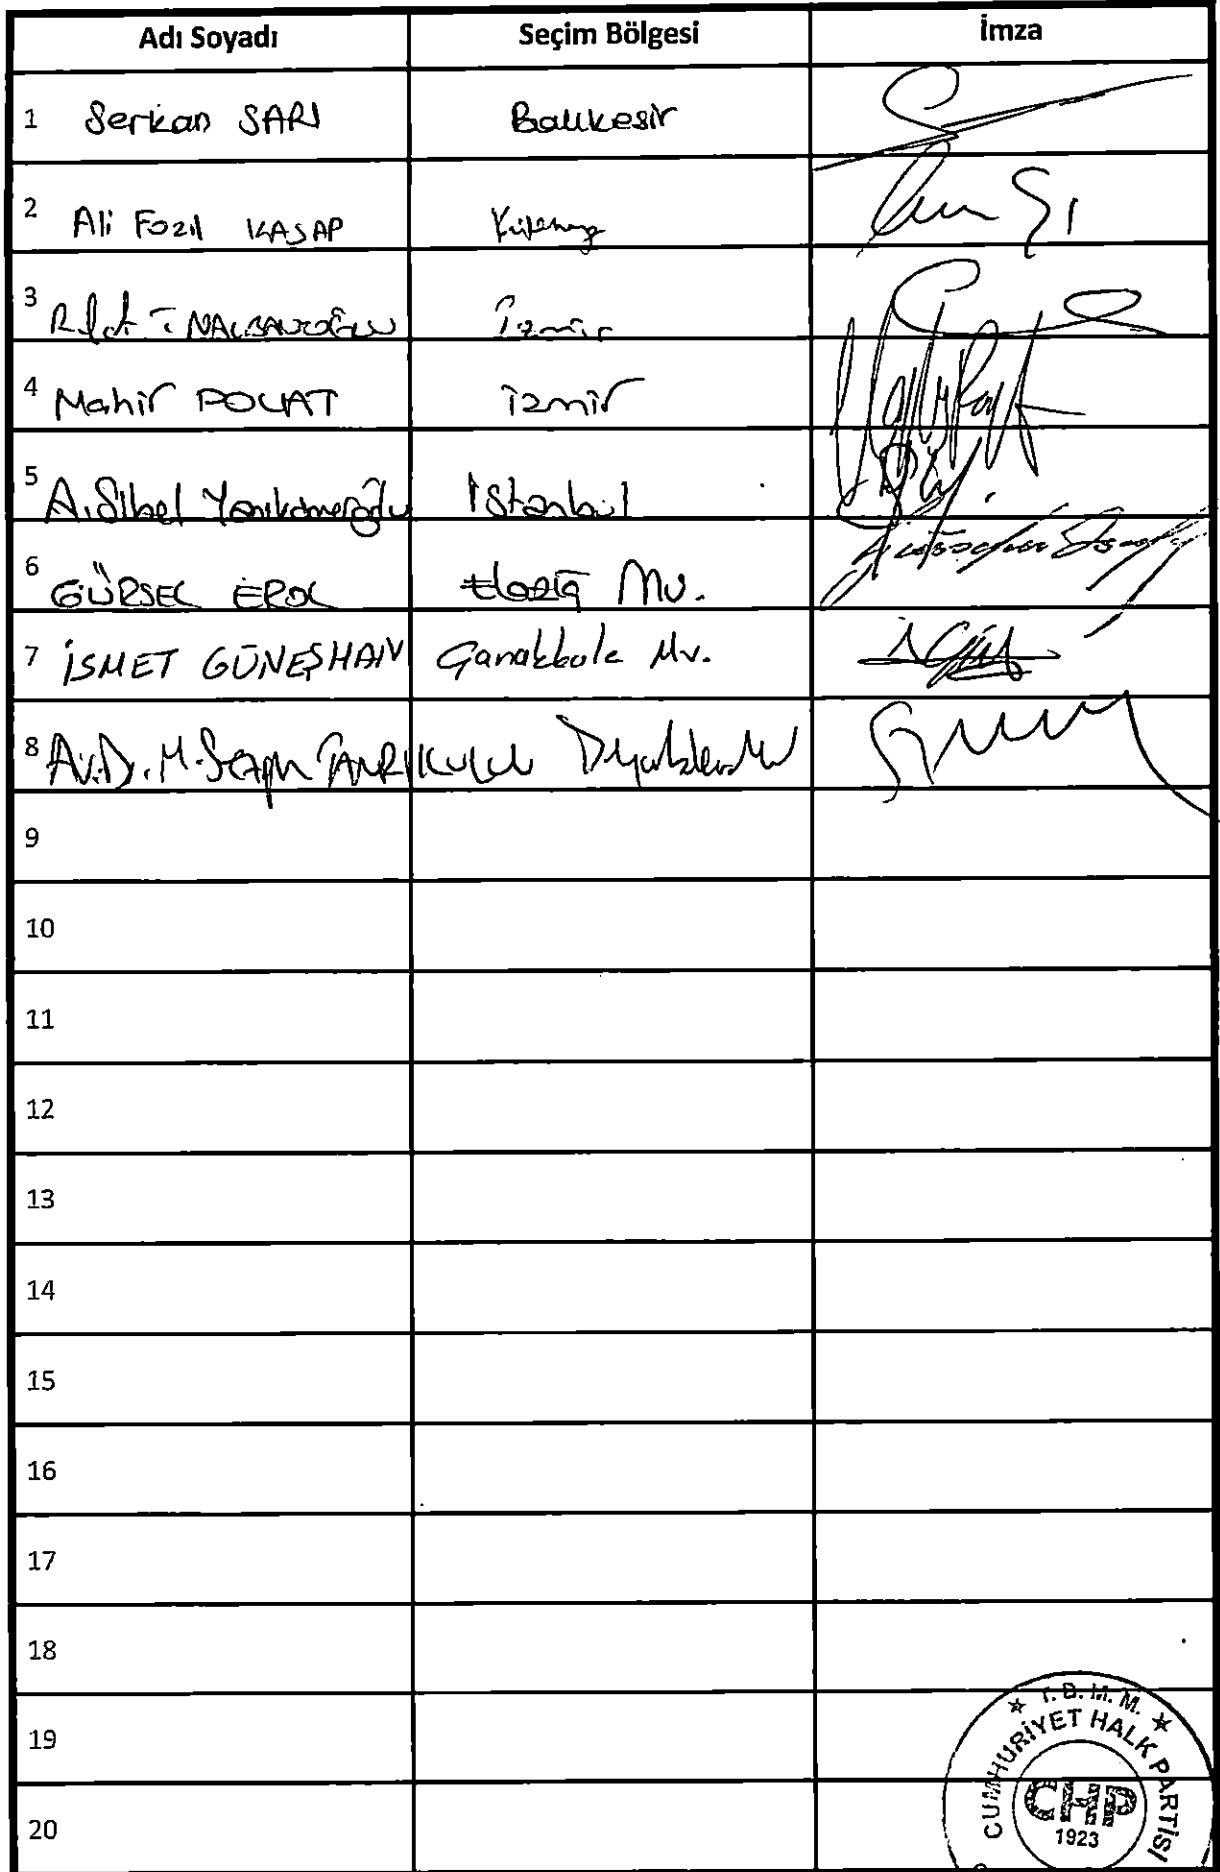 Adı Soyadı Seçim Bölgesi İmza
1 Serkan SARI Balıkesir
2 Ali Fazıl KASAP Kütahya
3 Rıfat T. NALBANTOĞLU İzmir
4 Mahir POLAT İzmir
5 A. Sibel Yanıkömeroğlu İstanbul
6 GÜRSEL EROL Elazığ Mv.
7 İSMET GÜNEŞHAN Çanakkale Mv.
8 Av. Dr. M. Sezgin TANRIKULU Diyarbakır Mv
9
10
11
12
13
14
15
16
17
18
19
20
T.B.M.M.
CUMHURİYET HALK PARTİSİ
CHP
1923